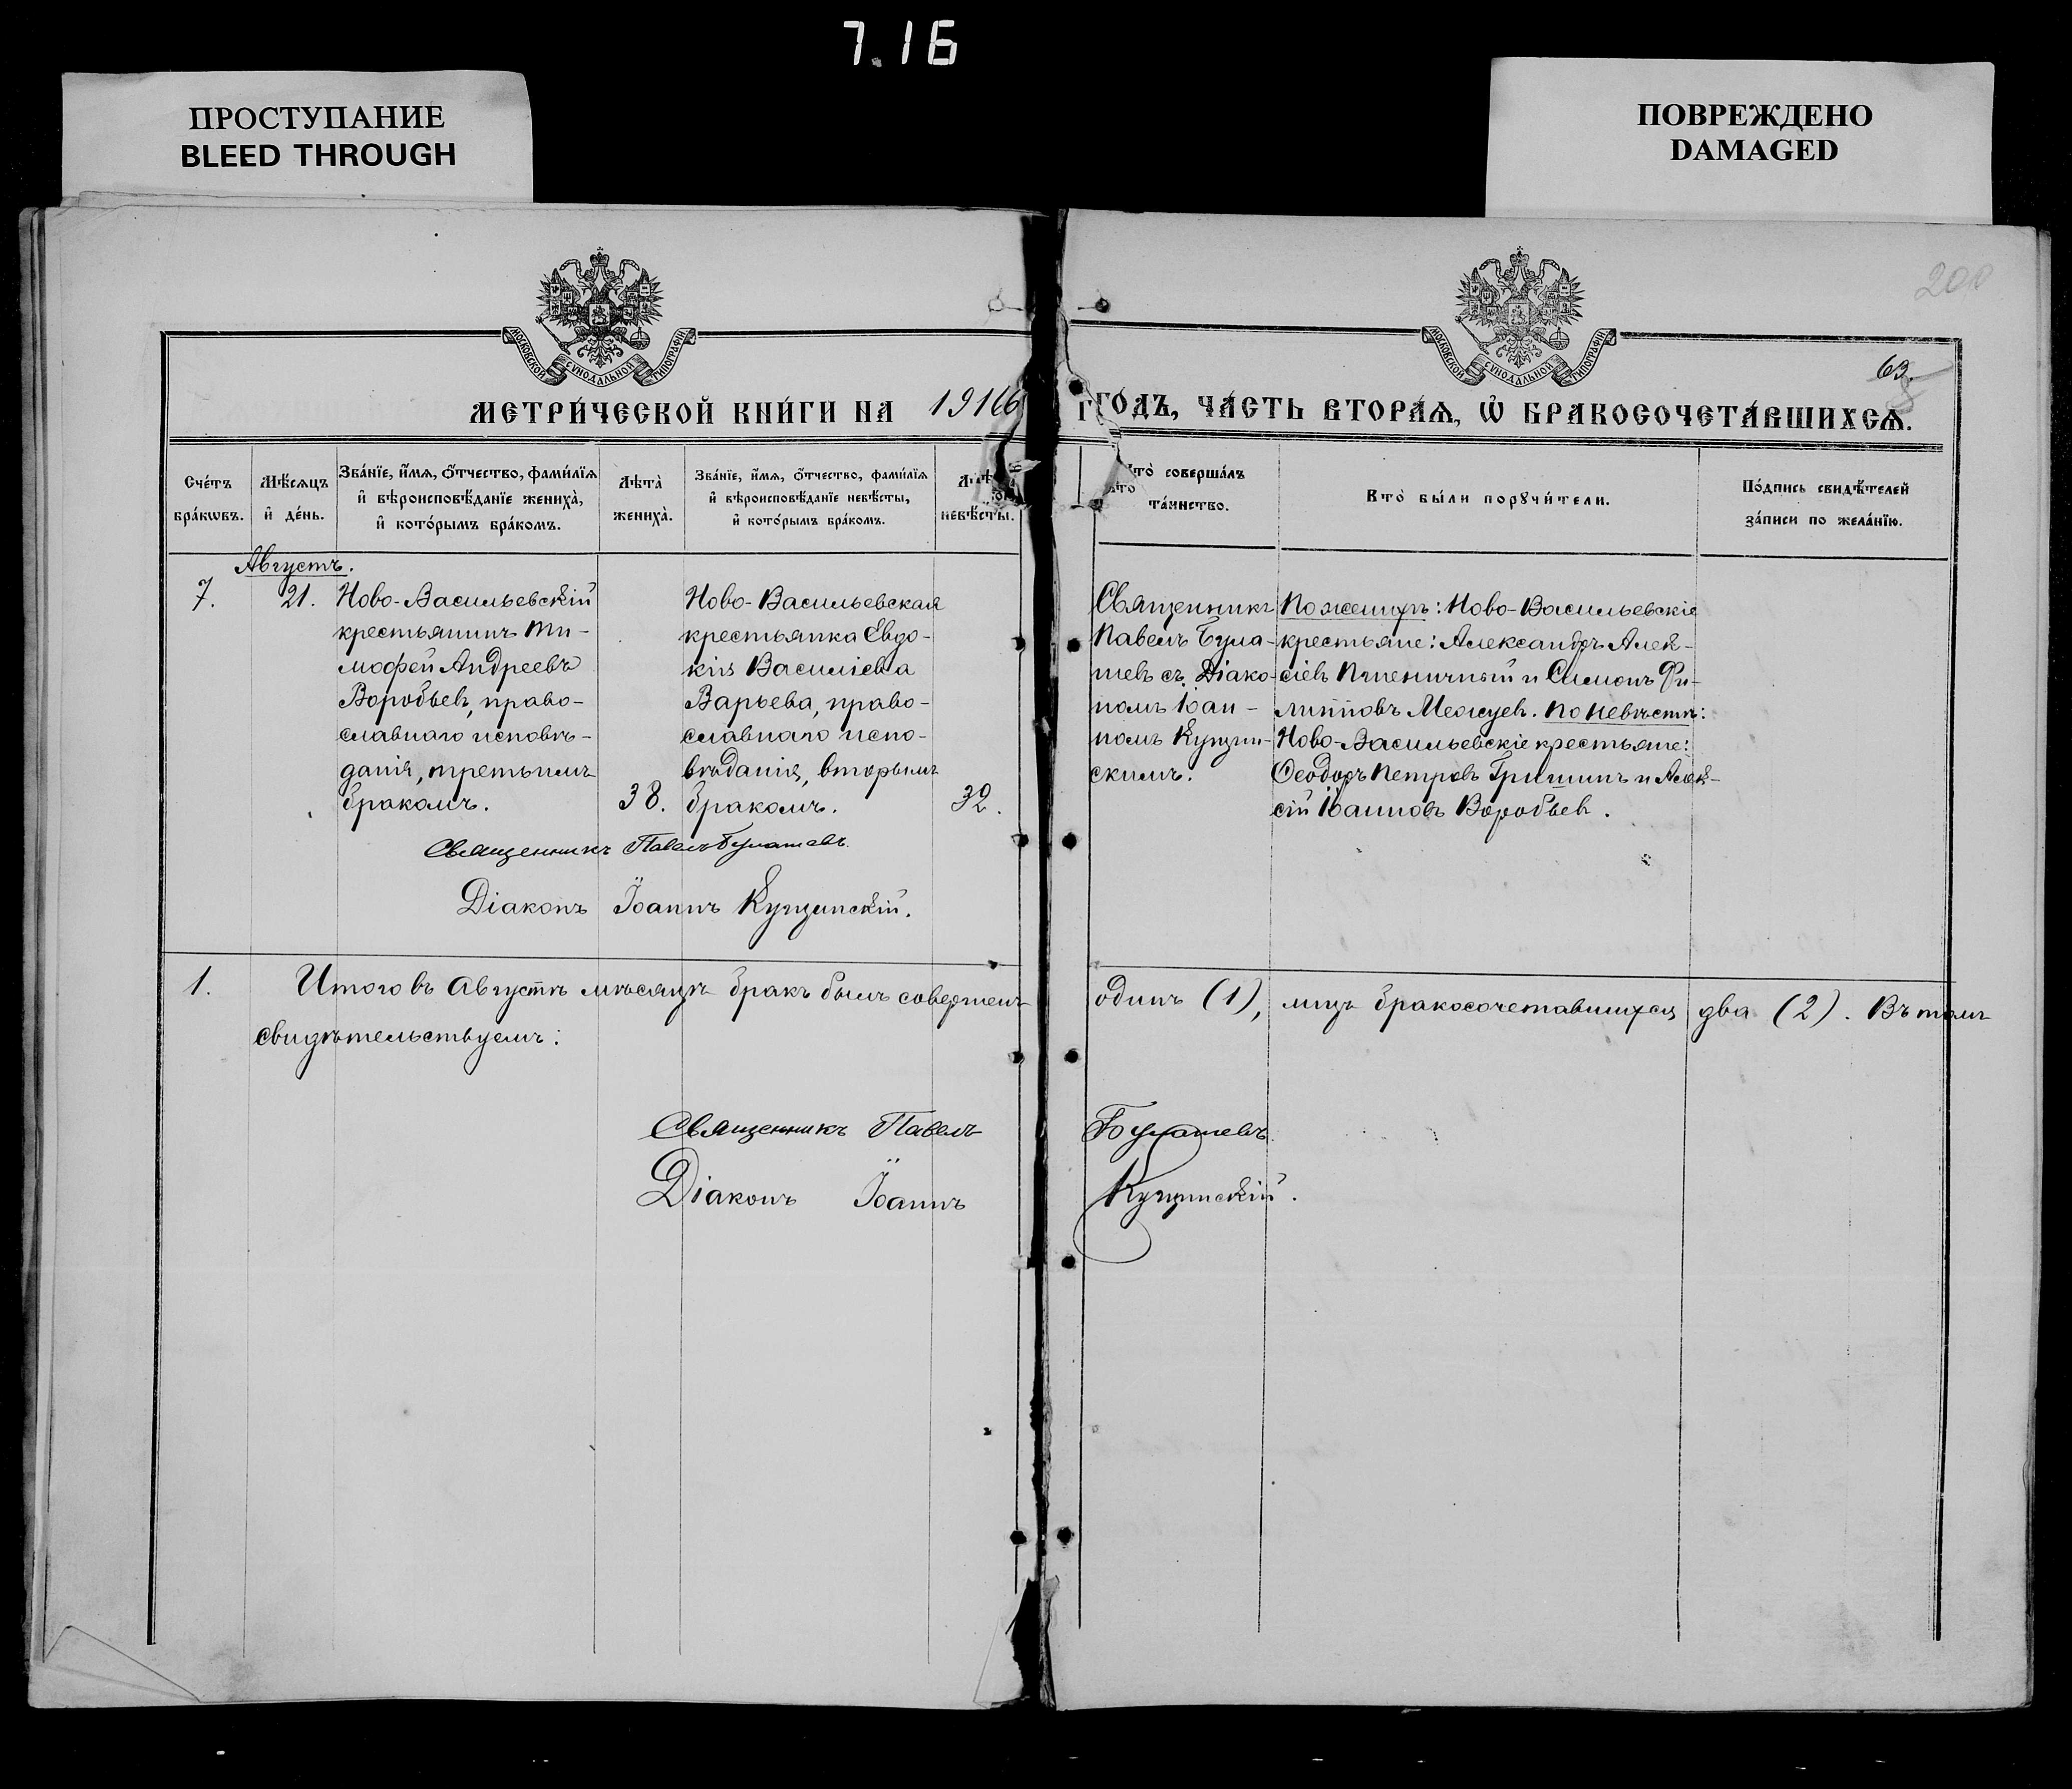 7.16
ПРОСТУПАНИЕ
BLEED THROUGH
ПОВРЕЖДЕНО
DAMAGED
МОСКОВСКОЙ СѴНОДАЛЬНОЙ ТИПОГРАФІИ
МОСКОВСКОЙ СѴНОДАЛЬНОЙ ТИПОГРАФІИ
63.
МЕТРИ́ЧЕСКОЙ КНИ́ГИ НА 1916
ГО́ДЪ, ЧА́СТЬ ВТОРА́Ѧ, Ѡ҆ БРАКОСОЧЕТА́ВШИХСѦ.
Сче́тъ
бра́кѡвъ.
Мѣ́сѧцъ
и҆ де́нь.
Зва́нїе, и҆́мѧ, ѻ҆́тчество, фами́лїѧ
и҆ вѣроисповѣ́данїе жениха̀,
и҆ кото́рымъ бра́комъ.
Лѣта̀
жениха̀.
Зва́нїе, и҆́мѧ, ѻ҆́тчество, фами́лїѧ
и҆ вѣроисповѣ́данїе невѣ́сты,
и҆ кото́рымъ бра́комъ.
невѣ́сты.
Кто̀ соверша́лъ
та́инство.
Кто̀ бы́ли порꙋчи́тели.
По́дпись свидѣ́телей
за́писи по жела́нїю.
Августъ.
7.
21.
Ново-Васильевскій
крестьянинъ Ти-
мофей Андреевъ
Воробьев, право-
славнаго исповѣ-
данія, третьимъ
бракомъ.
38.
Ново-Васильевская
крестьянка Евдо-
кія Василіева
Варьева, право-
славнаго испо-
вѣданія, вторымъ
бракомъ.
32.
Священникъ
Павелъ Була-
шев съ Діако-
номъ Іоан-
номъ Кунчин-
скимъ.
По женихѣ: Ново-Васильевскіе
крестьяне: Александръ Алек-
сіев Пшеничный и Симонъ Фи-
липповъ Межуев. По невѣстѣ:
Ново-Васильевскіе крестьяне:
Ѳеодоръ Петровъ Гришинъ и Алек-
сій Іоанновъ Воробьев.
Священникъ Павелъ Булашевъ
Діаконъ Іоаннъ Кунчинскій.
1. Итого въ Августѣ мѣсяцѣ бракъ былъ совершенъ один (1), лицъ бракосочетавшихся два (2). Въ томъ
свидѣтельствуемъ:
Священникъ Павелъ Булашевъ
Діаконъ Іоаннъ Кунчинскій.